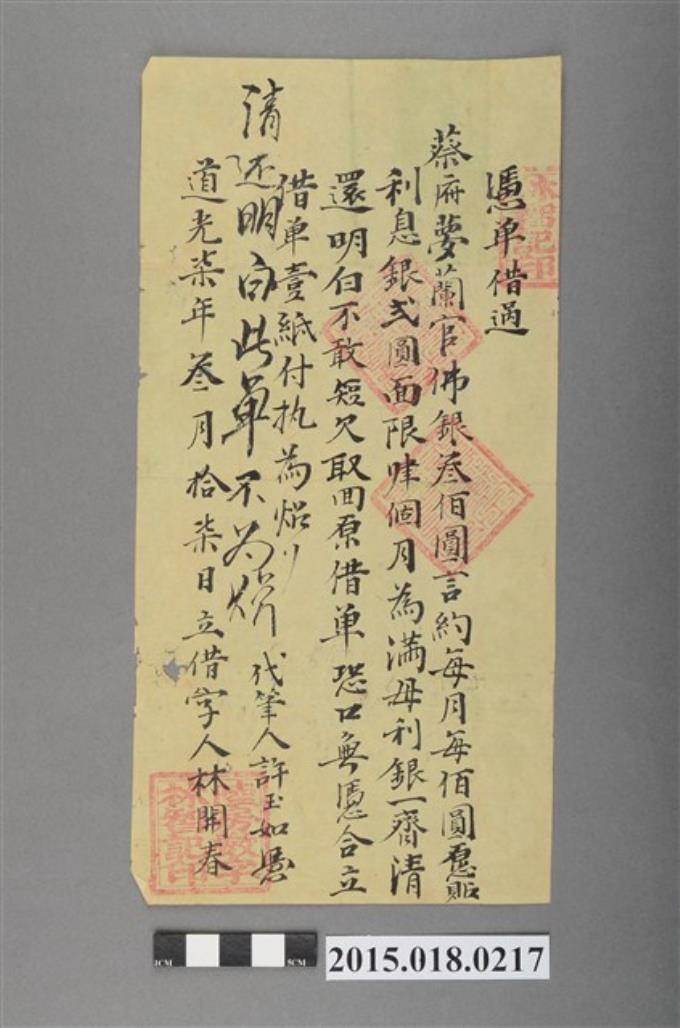 憑单借過
蔡府夢蘭官佛銀叁佰圓言約每月每佰圓愿貼
利息銀弍圓面限肆個月為滿母利銀一齊清
還明白不敢短欠取回原借单恐口無憑合立
借单壹紙付执為炤
清还明白此单不为炤
代筆人許玉如
道光柒年叁月拾柒日立借字人林開春
記印
2015.018.0217
1CM
5CM